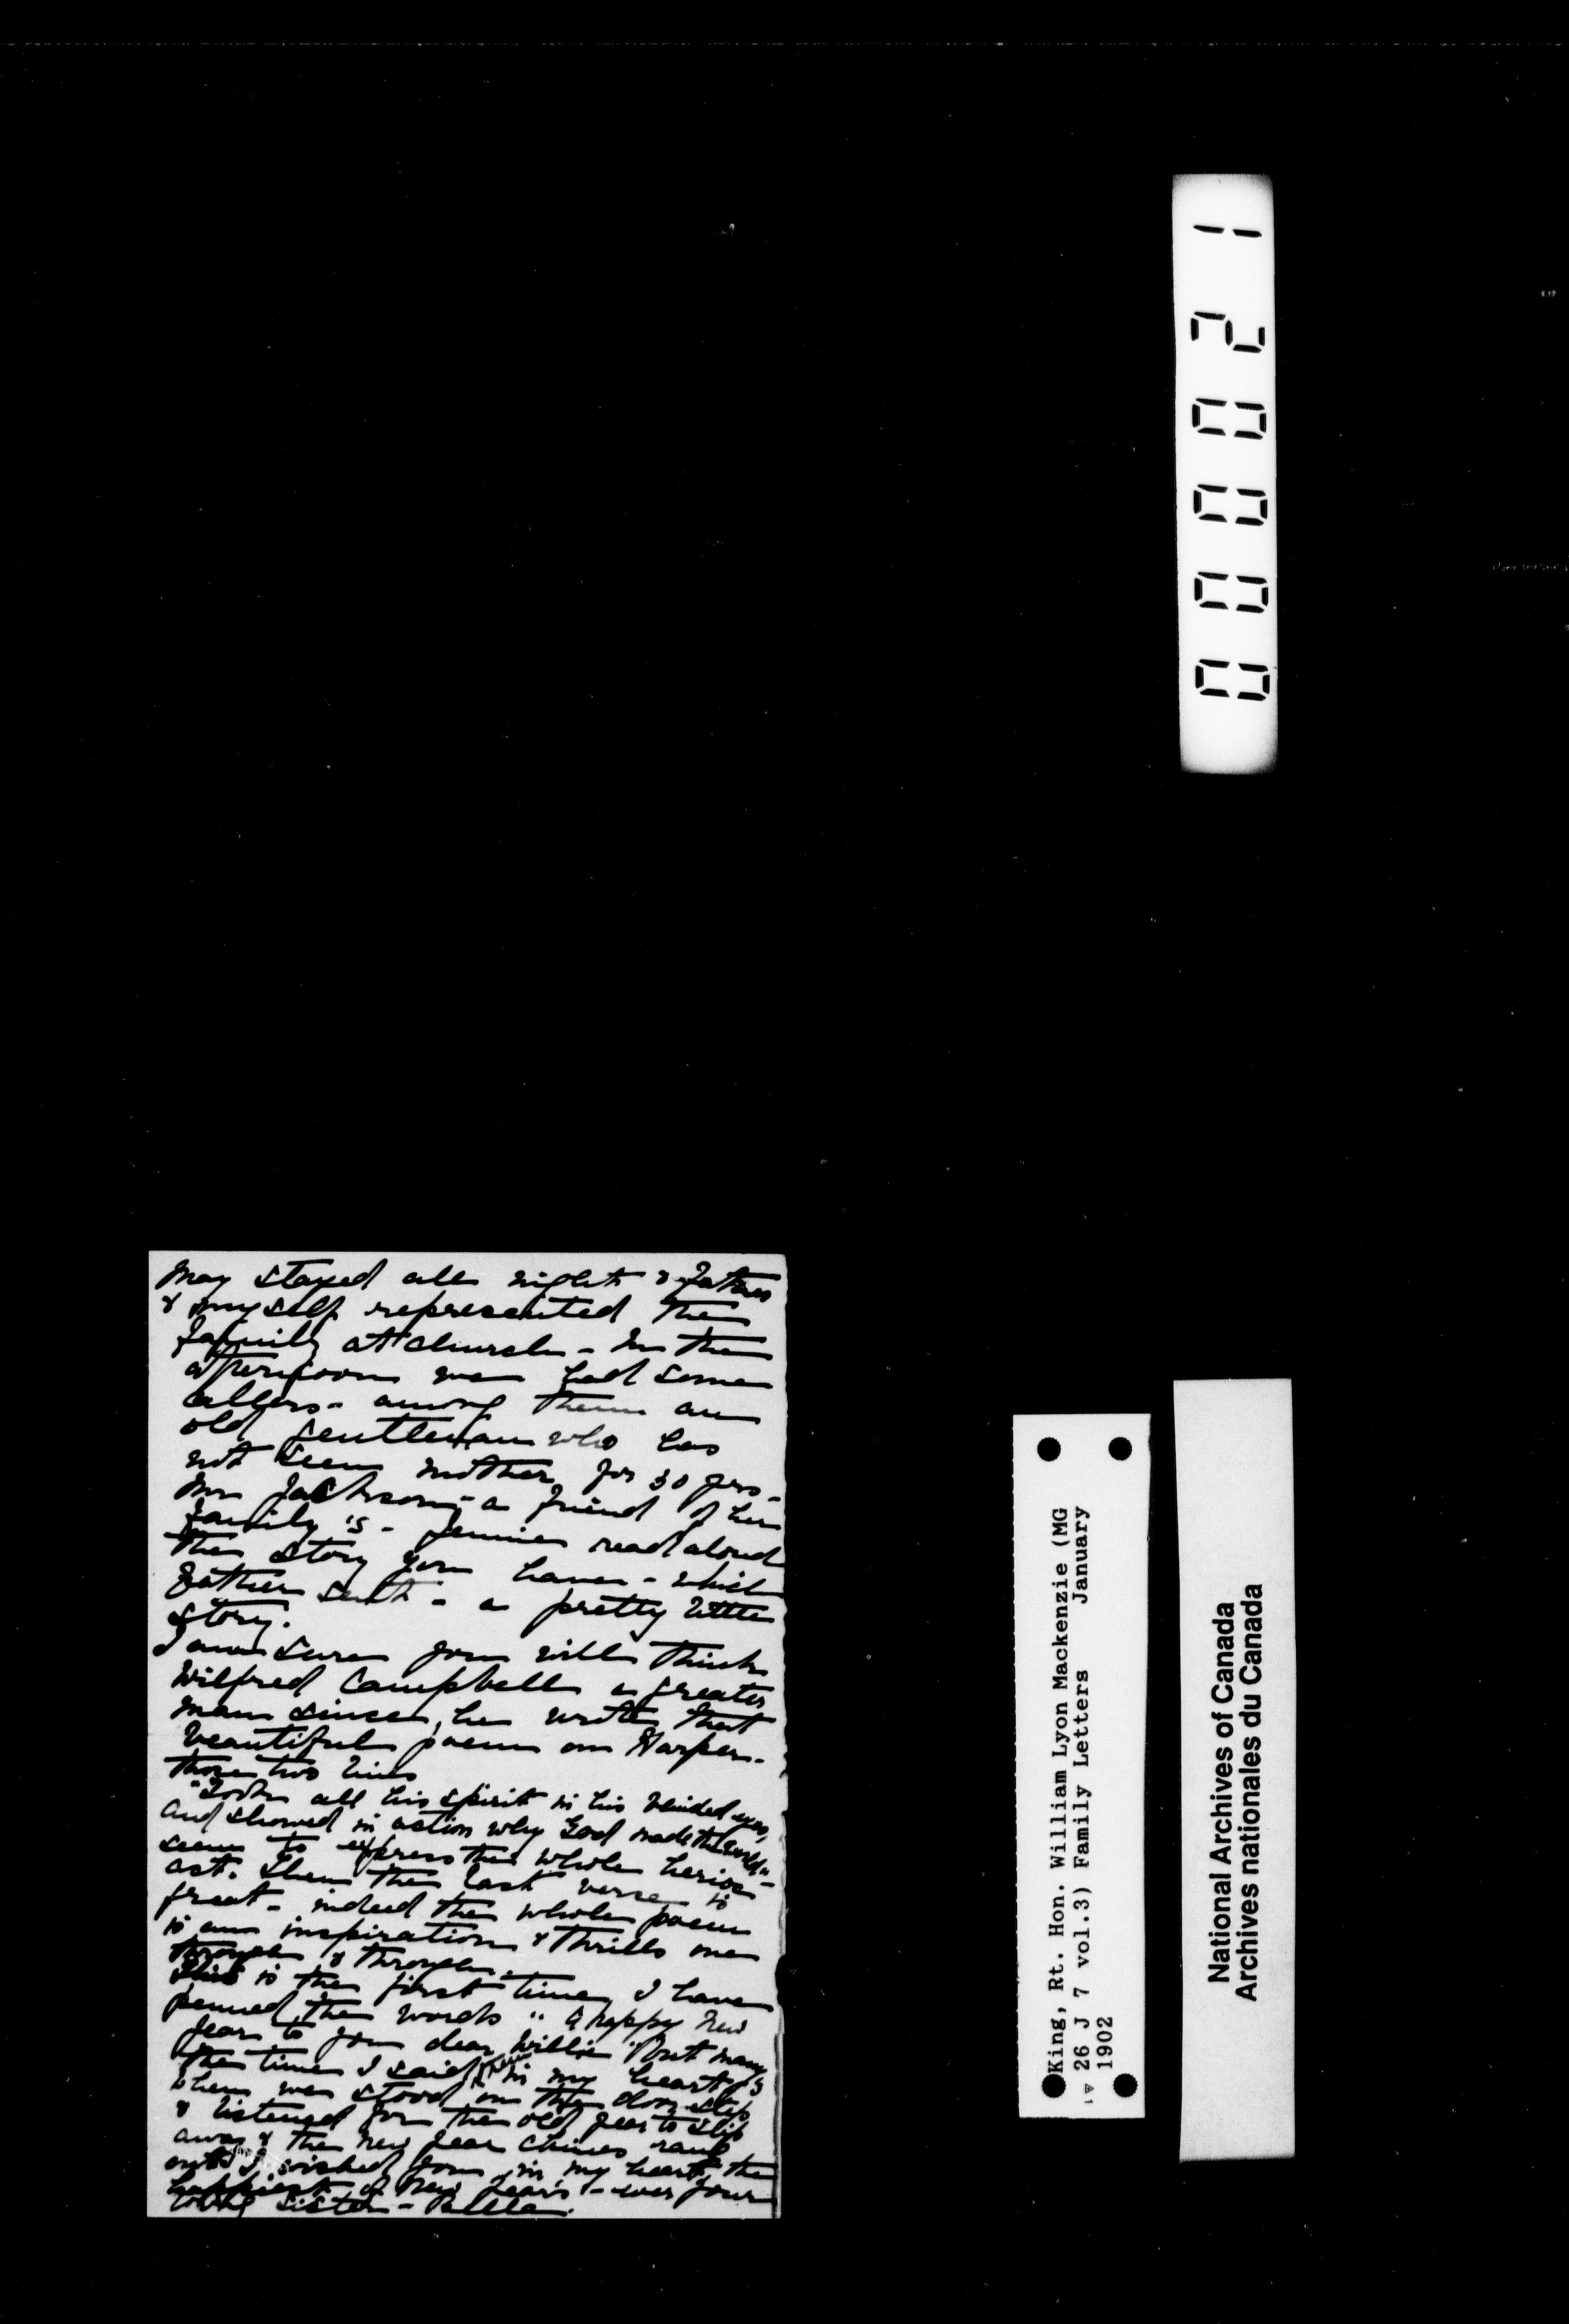 May stayed all night & Father
& myself represented the
family at church - In the
afternoon we had some
callers - among them an
old gentleman who has
not seen mother for 30 yrs -
Mr Jackson - a friend of her
family's - Jennie read aloud
the story you have - which
Father sent - a pretty little
story.
I am sure you will think
Wilfred Campbell a greater
man since he wrote that
beautiful poem on Harper -
those two lines
all his spirit in his blinded eyes,
and showed in action why God made the world"
seem to express the whole heroic
act. Then the last verse is
great - indeed the whole poem
is an inspiration & thrills one
through & through.
This is the first time I have
penned the words "A happy New
Year to you dear Willie" but many
the time I said in my heart as
when we stood on the door step
& listened for the old year to slip
away & the new year chimes rang
out I wished you in my heart the
happiest of New Years - ever your
loving sister - Bella.
000021
King, Rt. Hon. William Lyon Mackenzie (MG
26 J 7 vol.3) Family Letters January
1902
National Archives of Canada
Archives nationales du Canada